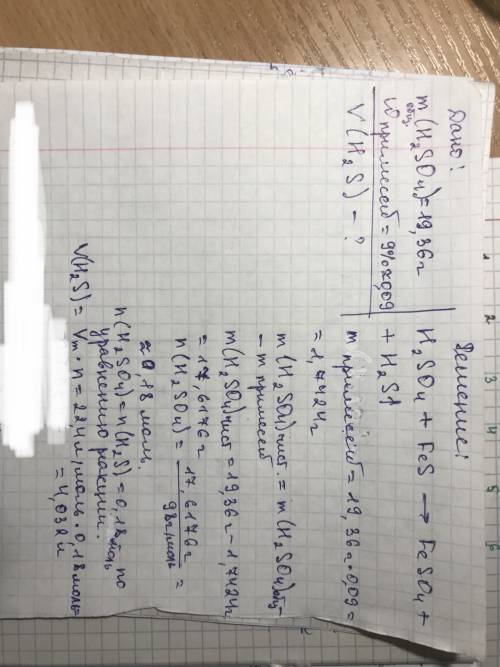 Дано:
m общ.(H₂SO₄)=19,36г
ω примесей = 9% 0,09
V(H₂S) - ?
Решение:
H₂SO₄ + FeS → FeSO₄ +
+ H₂S↑
m примесей = 19,36г·0,09=
= 1,7424г
m(H₂SO₄)чист. = m(H₂SO₄)общ-
- m примесей
m(H₂SO₄)чист = 19,36г-1,7424г
= 17,6176г
n(H₂SO₄) = 17,6176г / 98г/моль =
≈ 0,18 моль.
n(H₂SO₄)=n(H₂S)=0,18моль по
уравнению реакции.
V(H₂S) = Vm · n = 22,4л/моль · 0,18моль=
= 4,032л
1 2 3 4 5 6